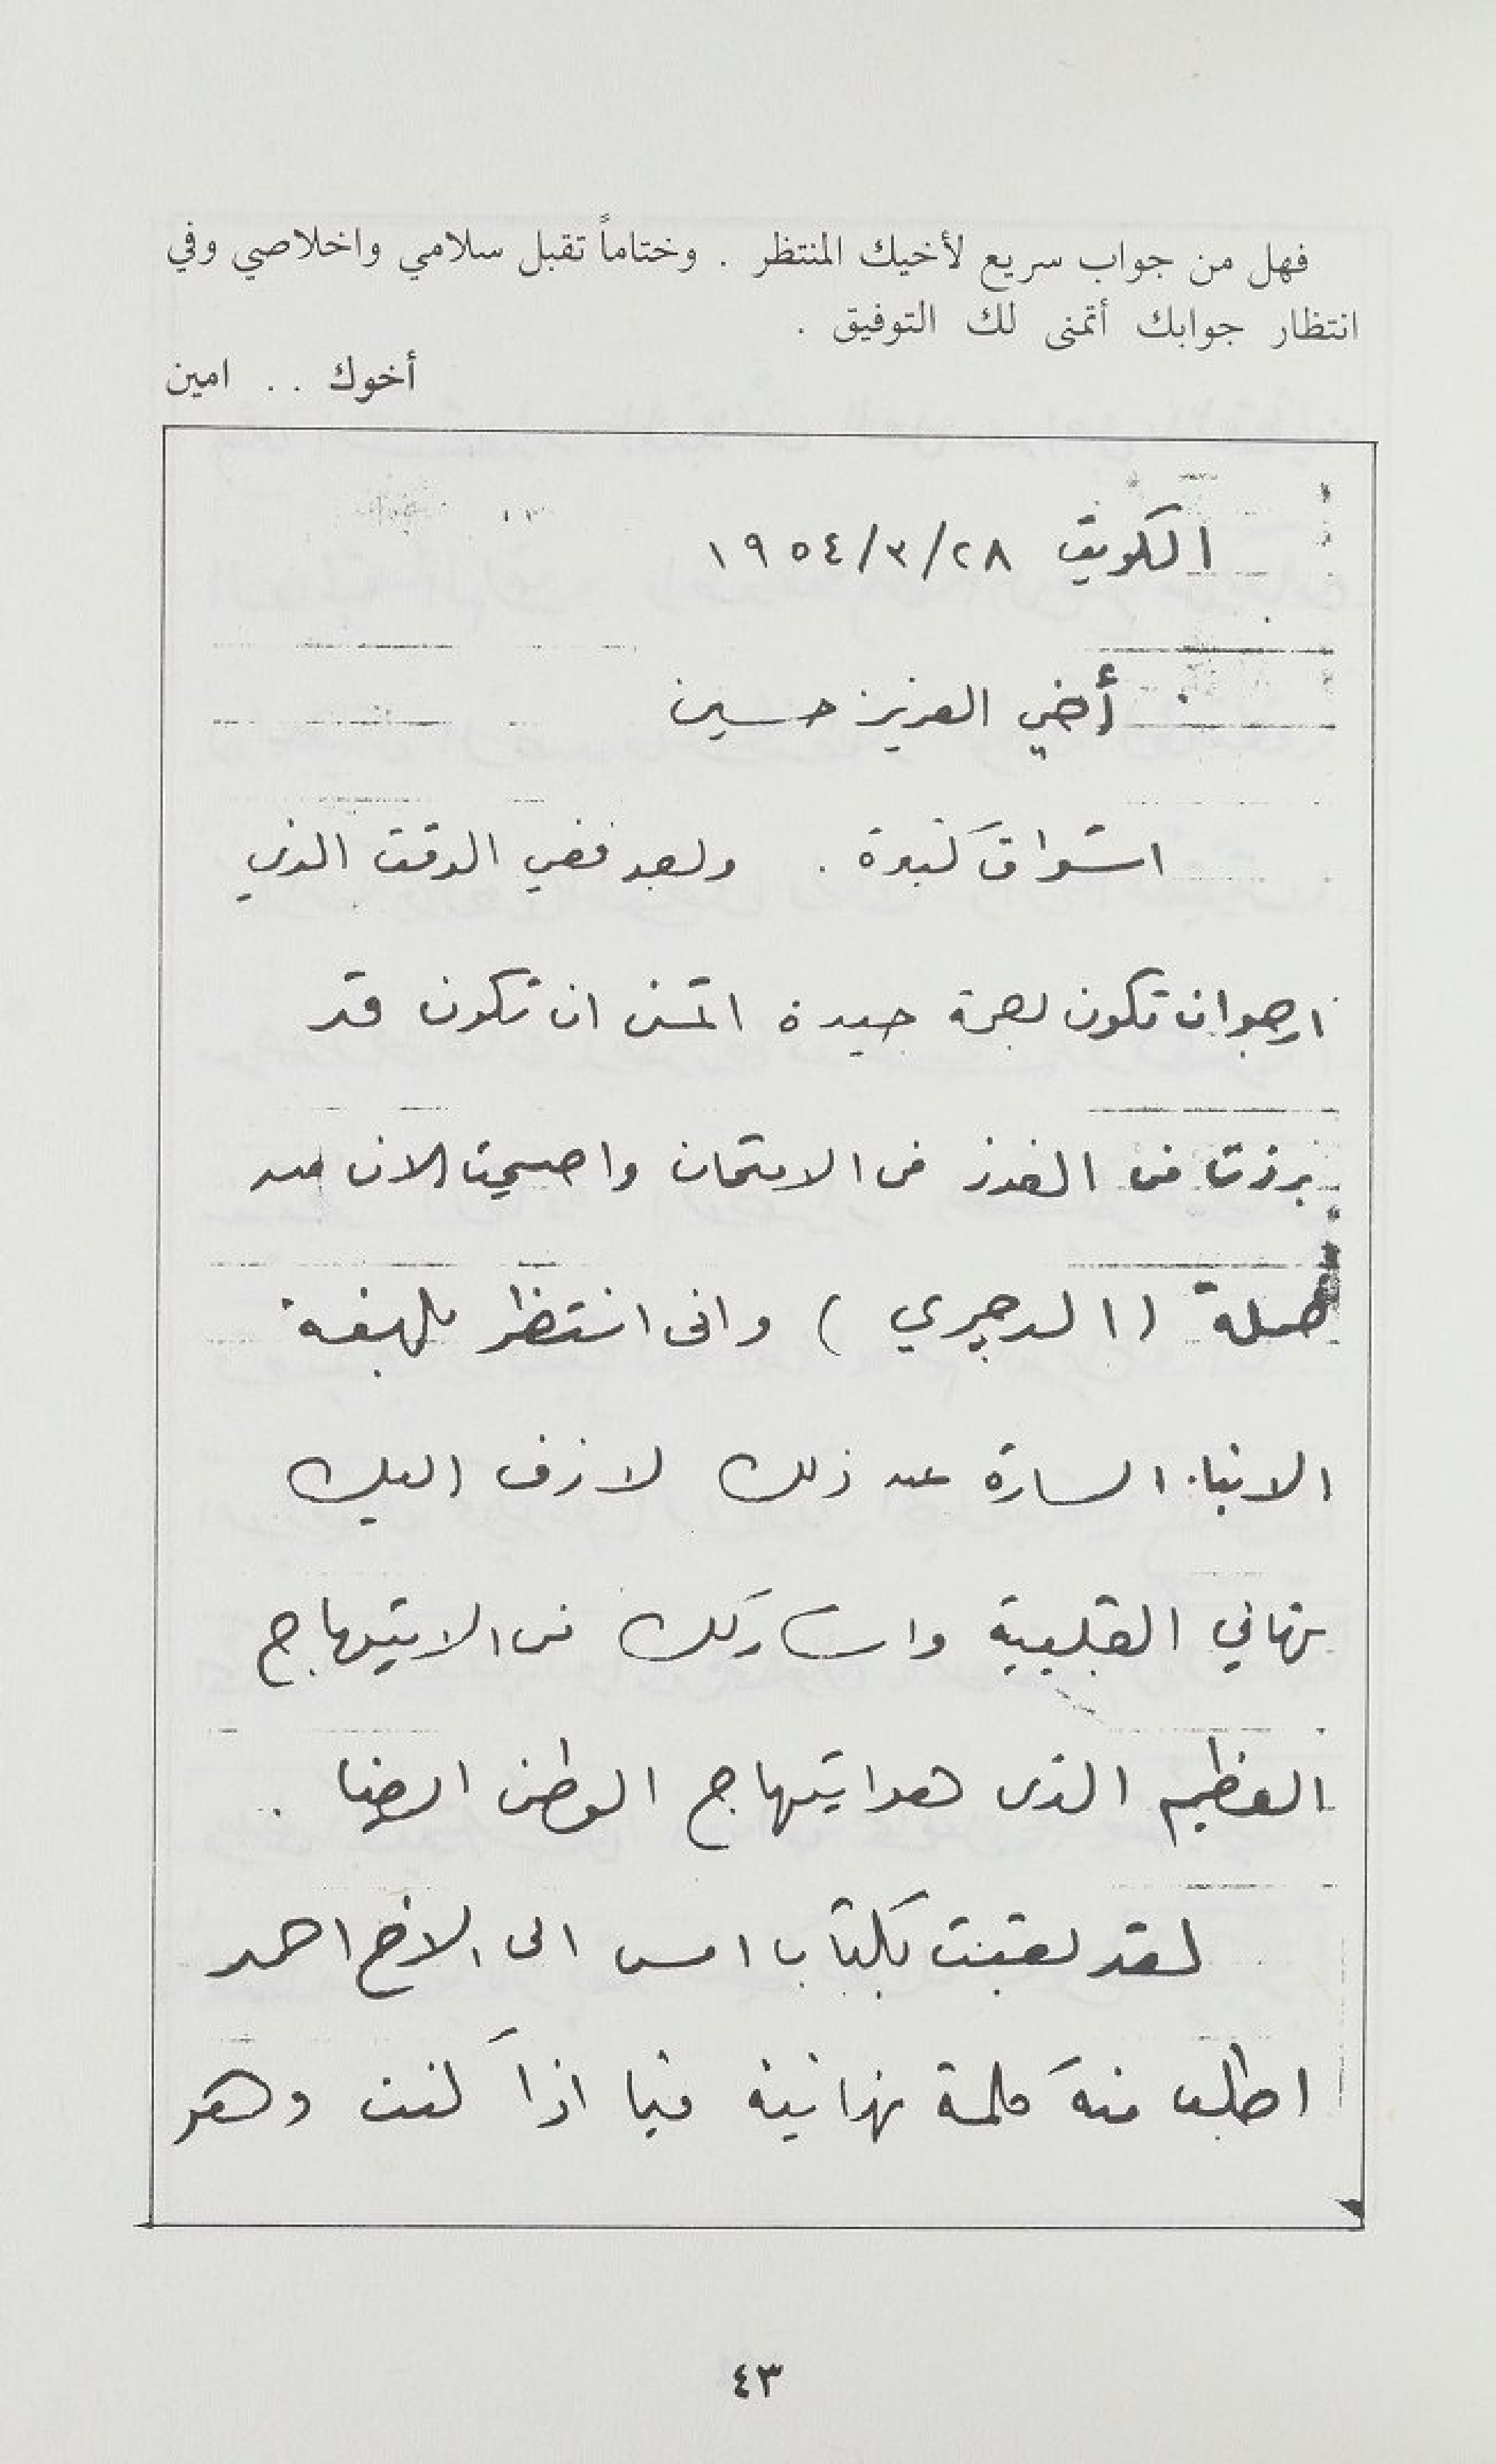 فهل من جواب سريع لأخيك المنتظر . وختاماً تقبل سلامي واخلاصي وفي
انتظار جوابك أتمنى لك التوفيق .
أخوك . . امين
الكويت ٢٨/٣/١٩٥٤
أخي العزيز حسين
اشواق كثيرة . وبعد ففي الوقت الذي
ارجو ان تكون بصحة جيدة اتمنى ان تكون قد
برزت في الفوز في الامتحان واصبحت الان من
حملة (الدجيري) وانى انتظر بلهفة
الانباء السارة عن ذلك لازف اليك
تهاني القلبية واشاركك في الابتهاج
العظيم الذى هو ابتهاج الوطن ايضا .
لقد بعثت بكتاب امس الى الاخ احمد
اطلب منه كلمة نهائية فيما اذا كنت وهو
٤٣